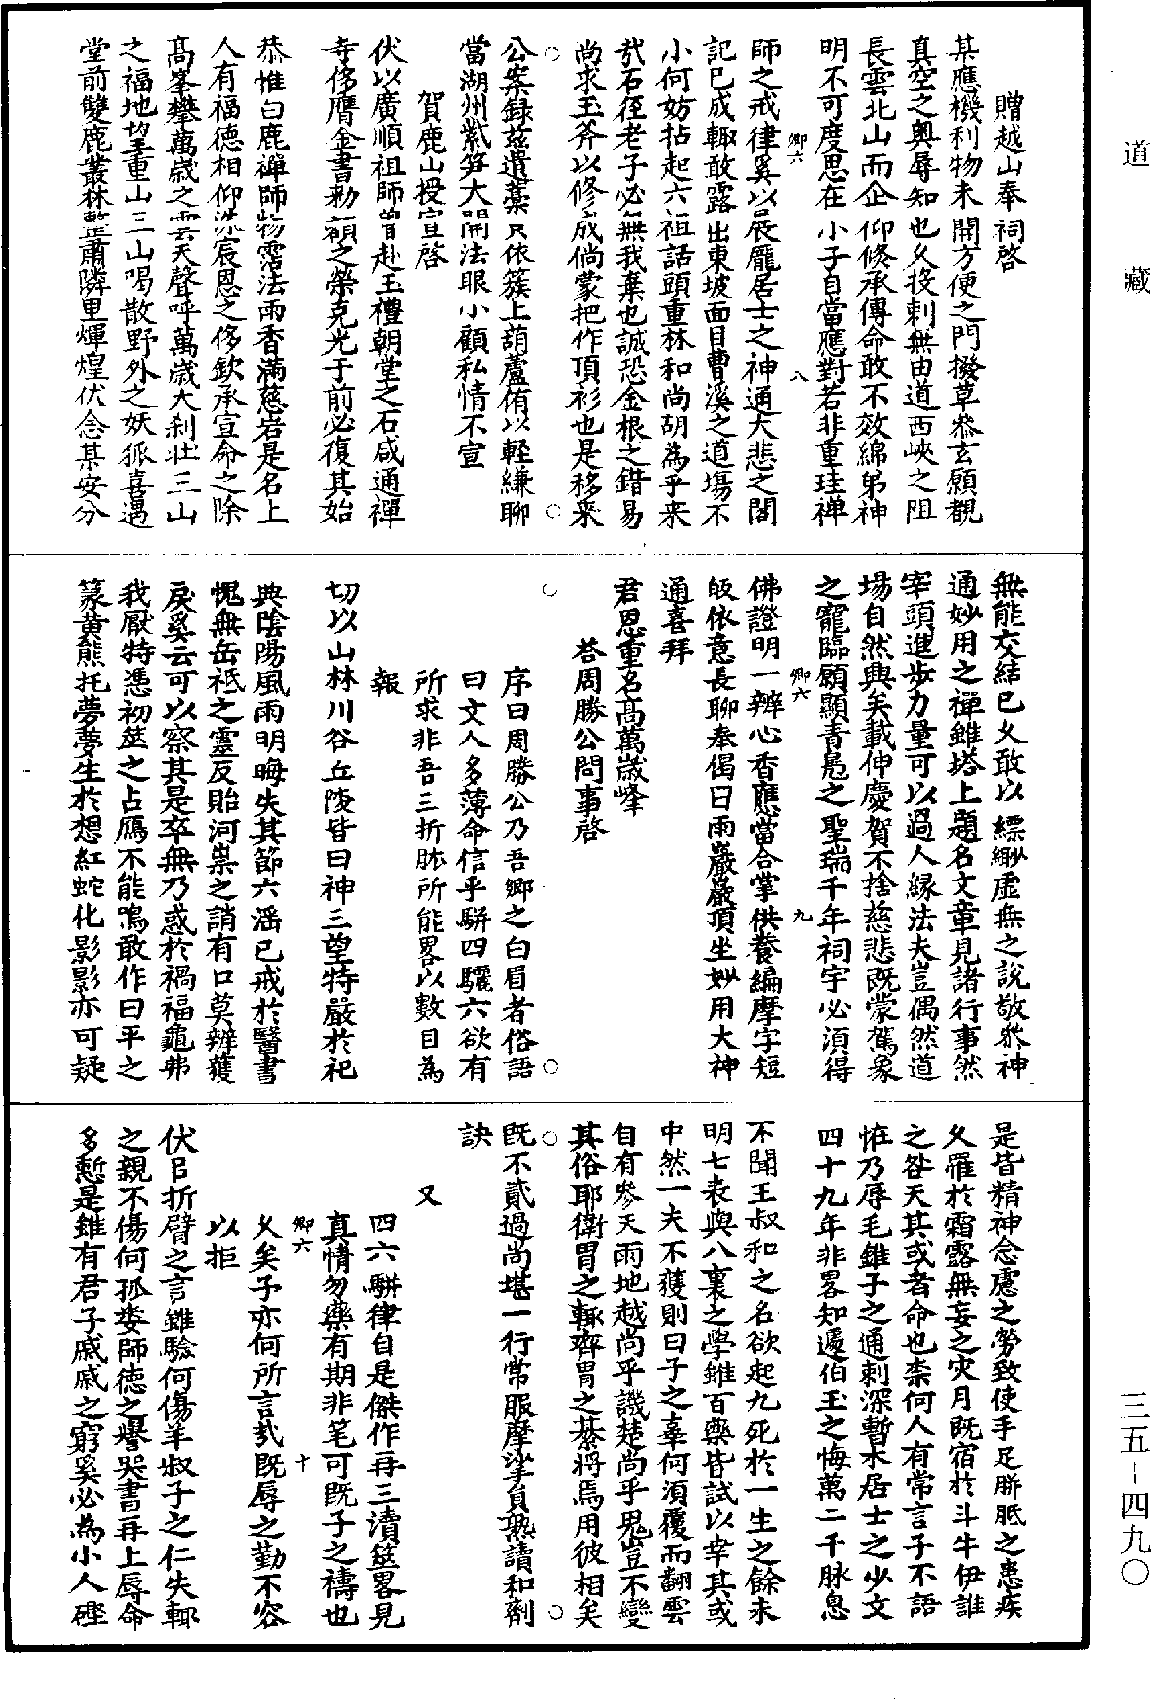 道藏
贈越山奉祠啓
某應機利物未開方便之門撥草叅玄願覩
真空之奧辱知也久投刺無由道西峽之阻
長雲北山而企仰修承傳命敢不效綿弟神
明不可度思在小子自當應對若非重珪禅
師之戒律奚以展龐居士之神通大悲之閣
記已成輙敢露出東坡面目曹溪之道場不
小何妨拈起六祖話頭重林和尚胡為乎来
㢤石徑老子必無我棄也誠恐金根之錯易
尚求玉斧以修成倘蒙把作頂衫也是移来
公案録兹遺藁只依簇上葫蘆侑以輕縑聊
當湖州紫笋大開法眼小顧私情不宣
賀鹿山授宣啓
伏以廣順祖師曽赴王禮朝堂之石咸通禪
寺侈膺金書勑額之榮克光于前必復其始
恭惟白鹿禪師物霑法雨香滿慈岩是名上
人有福德相仰洪宸恩之侈欽承宣命之除
髙峯攀萬歲之雲天聲呼萬歲大刹壯三山
之福地望重山三山喝散野外之妖狐喜遇
堂前雙鹿叢林整肅隣里煇煌伏念某安分
卿六
八
無能交結已久敢以縹緲虛無之說敬叅神
通妙用之禪雖塔上題名文章見諸行事然
宰頭進步力量可以過人緣法夫豈偶然道
場自然興矣載伸慶賀不捨慈悲既蒙駕象
之寵臨願顯青鳧之聖瑞千年祠宇必須得
佛證明一辨心香應當合掌供養編摩字短
皈依意長聊奉偈曰雨巖巖頂坐妙用大神
通喜拜
君恩重名髙萬歲峰
荅周勝公問事啓
序曰周勝公乃吾鄉之白眉者俗語
曰文人多薄命信乎駢四驪六欲有
所求非吾三折肱所能畧以數目為
報
切以山林川谷丘陵皆曰神三望特嚴於祀
典陰陽風雨明晦失其節六滛已戒於醫書
愧無岳祗之靈反貽河祟之誚有口莫辨䕶
戾奚云可以察其是卒無乃惑於禍福龜弗
我厭特憑初筮之占鴈不能鳴敢作曰平之
篆黄熊托夢夢生於想紅蛇化影影亦可疑
卿六
九
是皆精神念慮之勞致使手足胼胝之患疾
久罹於霜露無妄之灾月既宿於斗牛伊誰
之咎天其或者命也柰何人有常言子不語
恠乃辱毛錐子之通刺深暫木居士之少文
四十九年非畧知遽伯玉之悔萬二千脉息
不聞王叔和之名欲起九死於一生之餘未
明七表與八裏之學雖百藥皆試以幸其或
中然一夫不獲則曰子之辜何須覆而翻雲
自有參天雨地越尚乎譏楚尚乎鬼豈不變
其俗耶衛胃之輙齊胃之綦將焉用彼相矣
既不貳過尚堪一行常服摩挲負熟請和劑
訣
又
四六駢律自是傑作再三瀆筵畧見
真情勿藥有期非笔可既子之禱也
久矣子亦何所言㢤既辱之勤不容
以拒
伏㠯折臂之言雖驗何傷羊叔子之仁失輙
之親不傷何孤婁師徳之譽哭書再上辱命
多慙是雖有君子戚戚之窮奚必為小人硜
卿六
十
三五－四九〇